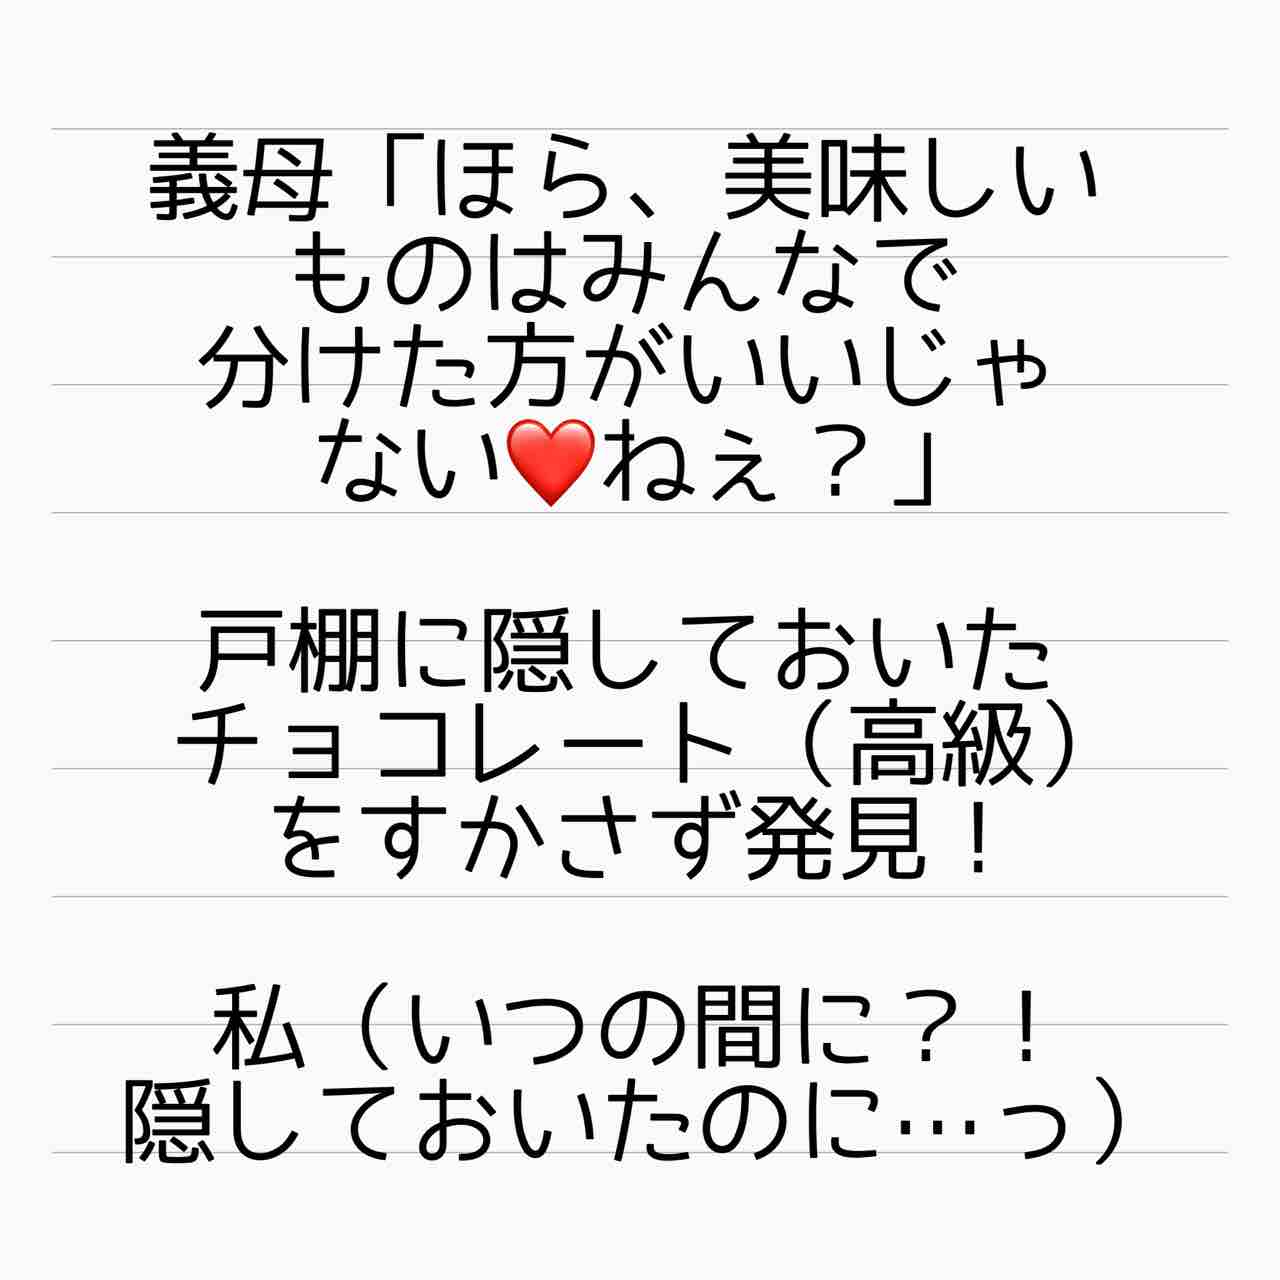 義母「ほら、美味しい
ものはみんなで
分けた方がいいじゃ
ない❤️ねぇ？」
戸棚に隠しておいた
チョコレート（高級）
をすかさず発見！
私（いつの間に？！
隠しておいたのに…っ）